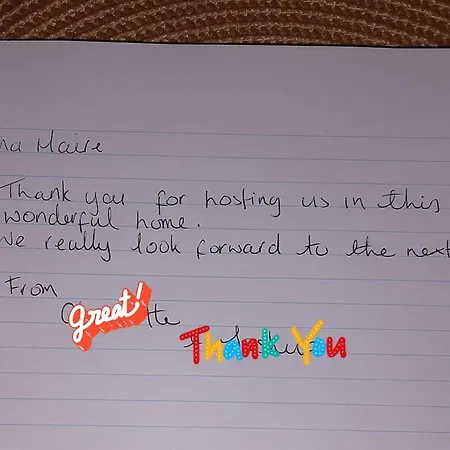 na Maire
Thank you for hosting us in this
wonderful home.
We really look forward to the next
From
great!
tte
Thank You